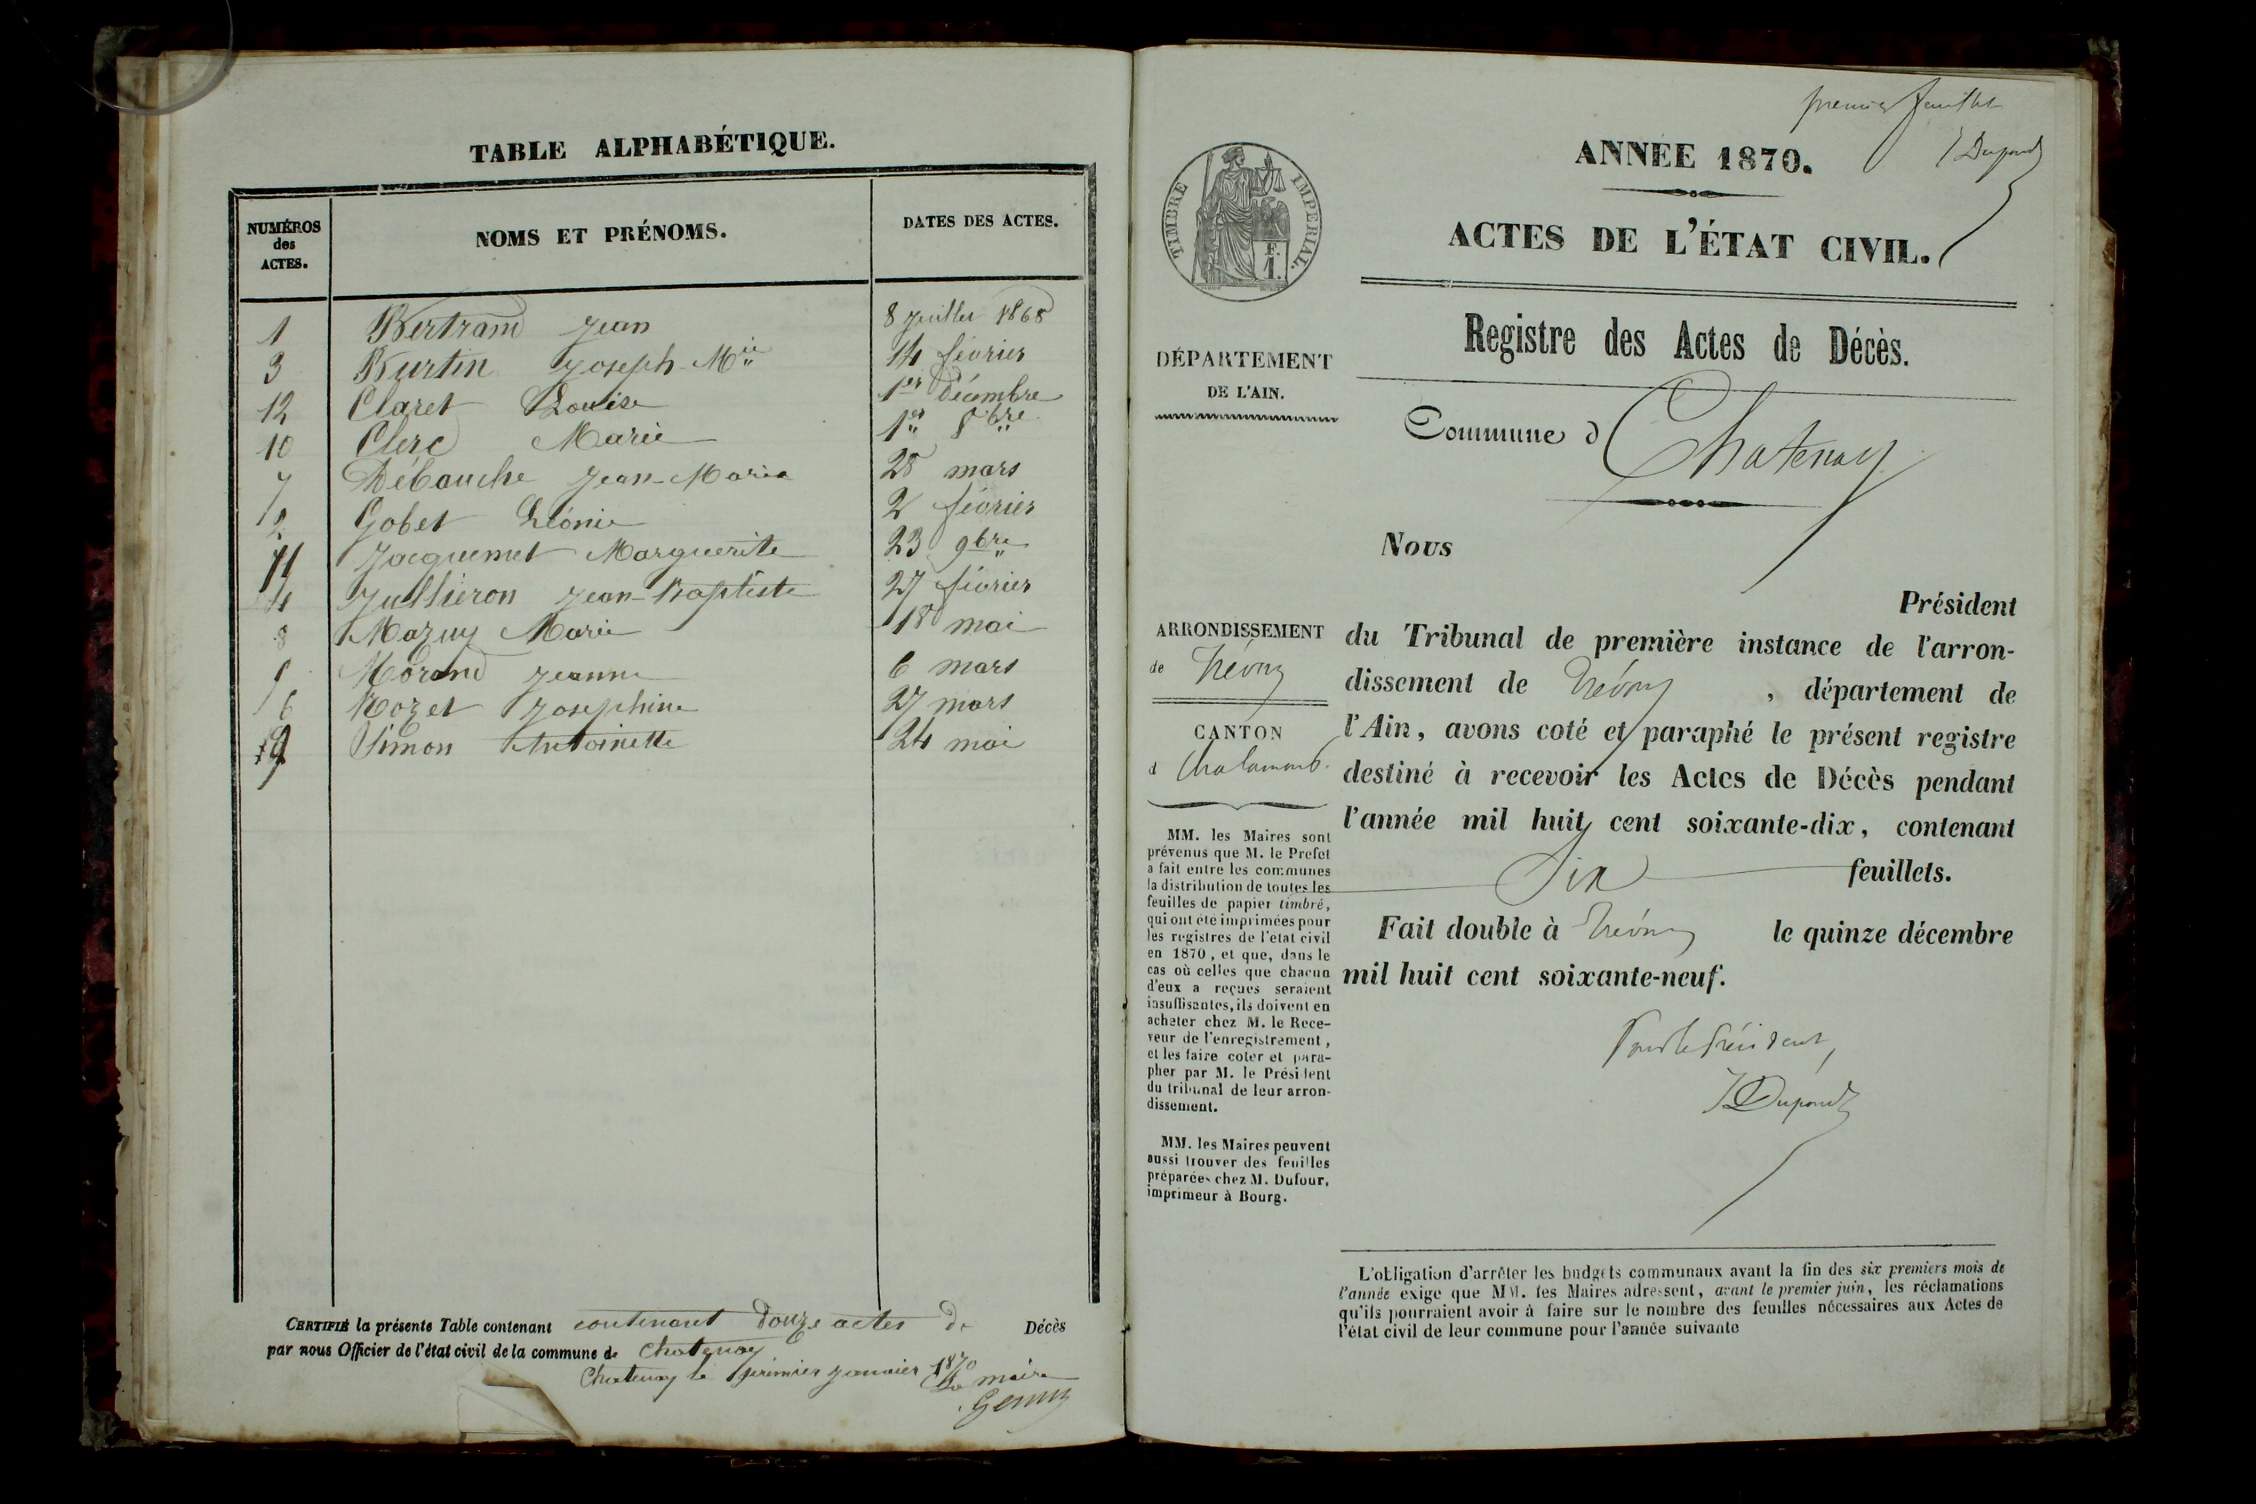 TABLE ALPHABÉTIQUE.
NUMÉROS des ACTES. NOMS ET PRÉNOMS. DATES DES ACTES.
1 Bertrand Jean 8 juillet 1868
3 Burtin Joseph-Mie 14 février
12 Claret Louise 1er décembre
10 Clerc Marie 1er 8bre
7 Débauche Jean-Marie 28 mars
2 Gobet Léonie 2 février
11 Jacquemet Marguerite 23 9bre
4 Jullieron Jean-Baptiste 27 février
8 Mazuy Marie 18 mai
5 Morand Jeanne 6 mars
6 Rozet Josephine 27 mars
9 Simon Antoinette 24 mai
CERTIFIÉ la présente Table contenant contenant douze actes de Décès
par nous Officier de l'état civil de la commune de Chatenay
Chatenay le premier janvier 1870
Le maire
premier feuillet
Dupond
ANNÉE 1870.
ACTES DE L'ÉTAT CIVIL.
TIMBRE IMPÉRIAL.
F.
1.
Registre des Actes de Décès.
DÉPARTEMENT
DE L'AIN.
Commune d Chatenay
Nous
Président
du Tribunal de première instance de l'arron-
dissement de Trévoux, département de
l'Ain, avons coté et paraphé le présent registre
destiné à recevoir les Actes de Décès pendant
l'année mil huit cent soixante-dix, contenant
Six feuillets.
Fait double à Trévoux le quinze décembre
mil huit cent soixante-neuf.
Pour le Président,
Dupond
ARRONDISSEMENT
de Trévoux
CANTON
d Chalamont
MM. les Maires sont
prévenus que M. le Prefet
a fait entre les communes
la distribution de toutes les
feuilles de papier timbré,
qui ont été imprimées pour
les registres de l'état civil
en 1870, et que, dans le
cas où celles que chacun
d'eux a reçues seraient
insuffisantes, ils doivent en
acheter chez M. le Rece-
veur de l'enregistrement,
et les faire coter et para-
pher par M. le Président
du tribunal de leur arron-
dissement.
MM. les Maires peuvent
aussi trouver des feuilles
préparées chez M. Dufour,
imprimeur à Bourg.
L'obligation d'arrêter les budgets communaux avant la fin des six premiers mois de
l'année exige que MM. les Maires adressent, avant le premier juin, les réclamations
qu'ils pourraient avoir à faire sur le nombre des feuilles nécessaires aux Actes de
l'état civil de leur commune pour l'année suivante